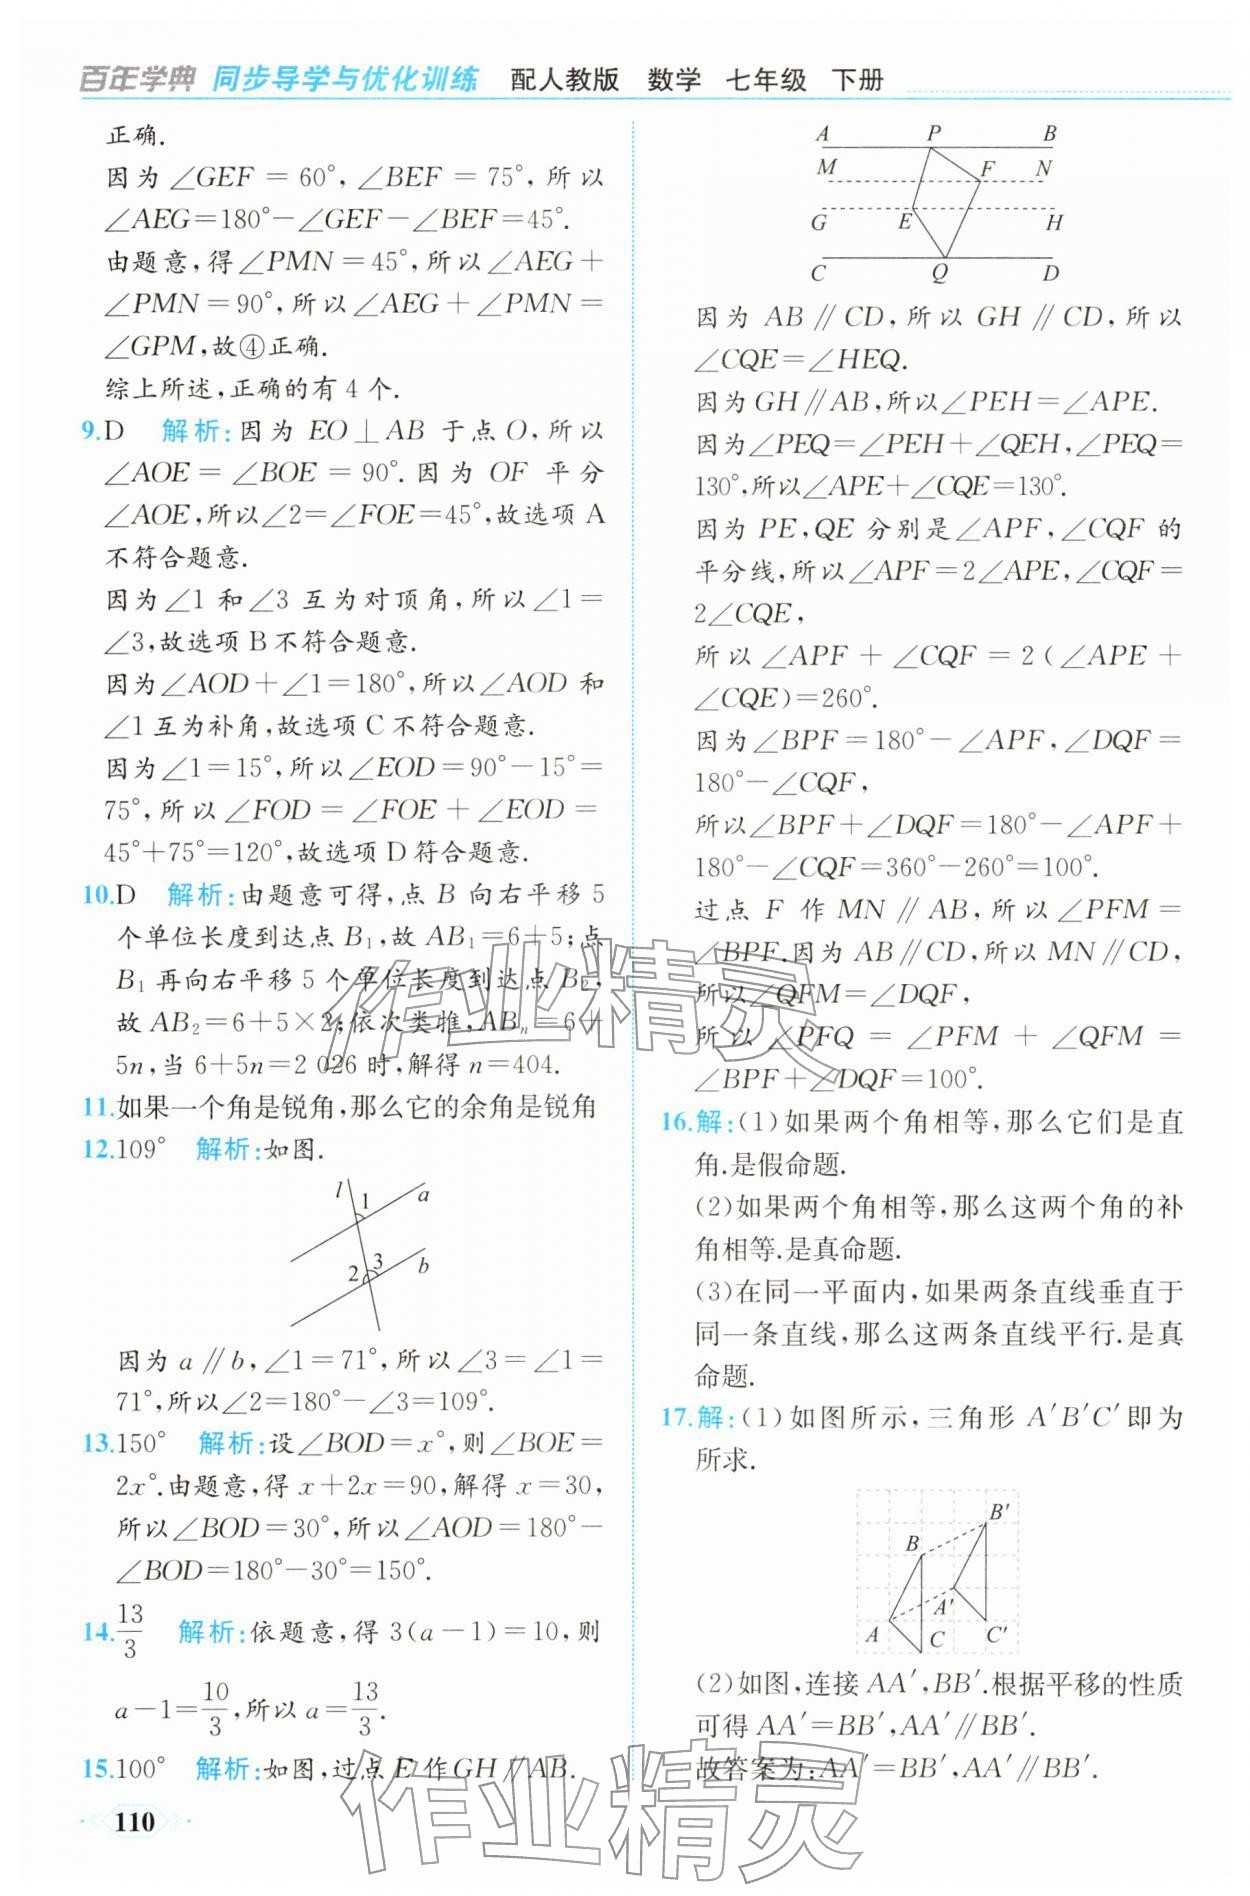 百年学典 同步导学与优化训练 配人教版 数学 七年级 下册
正确.
因为∠GEF=60°,∠BEF=75°,所以
∠AEG=180°-∠GEF-∠BEF=45°.
由题意,得∠PMN=45°,所以∠AEG+
∠PMN=90°,所以∠AEG+∠PMN=
∠GPM,故④正确.
综上所述,正确的有4个.
9.D 解析:因为EO⊥AB于点O,所以
∠AOE=∠BOE=90°.因为OF平分
∠AOE,所以∠2=∠FOE=45°,故选项A
不符合题意.
因为∠1和∠3互为对顶角,所以∠1=
∠3,故选项B不符合题意.
因为∠AOD+∠1=180°,所以∠AOD和
∠1互为补角,故选项C不符合题意.
因为∠1=15°,所以∠EOD=90°-15°=
75°,所以∠FOD=∠FOE+∠EOD=
45°+75°=120°,故选项D符合题意.
10.D 解析:由题意可得,点B向右平移5
个单位长度到达点B₁,故AB₁=6+5;点
B₁再向右平移5个单位长度到达点B₂,
故AB₂=6+5×2;依次类推,ABₙ=6+
5n,当6+5n=2 026时,解得n=404.
11.如果一个角是锐角,那么它的余角是锐角
12.109° 解析:如图.
l
1
a
2
3
b
因为a∥b,∠1=71°,所以∠3=∠1=
71°,所以∠2=180°-∠3=109°.
13.150° 解析:设∠BOD=x°,则∠BOE=
2x°.由题意,得x+2x=90,解得x=30,
所以∠BOD=30°,所以∠AOD=180°-
∠BOD=180°-30°=150°.
14.13/3 解析:依题意,得3(a-1)=10,则
a-1=10/3,所以a=13/3.
15.100° 解析:如图,过点E作GH∥AB.
110
A P B
M F N
G E H
C Q D
因为AB∥CD,所以GH∥CD,所以
∠CQE=∠HEQ.
因为GH∥AB,所以∠PEH=∠APE.
因为∠PEQ=∠PEH+∠QEH,∠PEQ=
130°,所以∠APE+∠CQE=130°.
因为PE,QE分别是∠APF,∠CQF的
平分线,所以∠APF=2∠APE,∠CQF=
2∠CQE,
所以∠APF+∠CQF=2(∠APE+
∠CQE)=260°.
因为∠BPF=180°-∠APF,∠DQF=
180°-∠CQF,
所以∠BPF+∠DQF=180°-∠APF+
180°-∠CQF=360°-260°=100°.
过点F作MN∥AB,所以∠PFM=
∠BPF.因为AB∥CD,所以MN∥CD,
所以∠QFM=∠DQF,
所以∠PFQ=∠PFM+∠QFM=
∠BPF+∠DQF=100°.
16.解:(1)如果两个角相等,那么它们是直
角.是假命题.
(2)如果两个角相等,那么这两个角的补
角相等.是真命题.
(3)在同一平面内,如果两条直线垂直于
同一条直线,那么这两条直线平行.是真
命题.
17.解:(1)如图所示,三角形A′B′C′即为
所求.
B′
B
A′
A
C
C′
(2)如图,连接AA′,BB′.根据平移的性质
可得AA′=BB′,AA′∥BB′.
故答案为:AA′=BB′,AA′∥BB′.
作业精灵
作业精灵